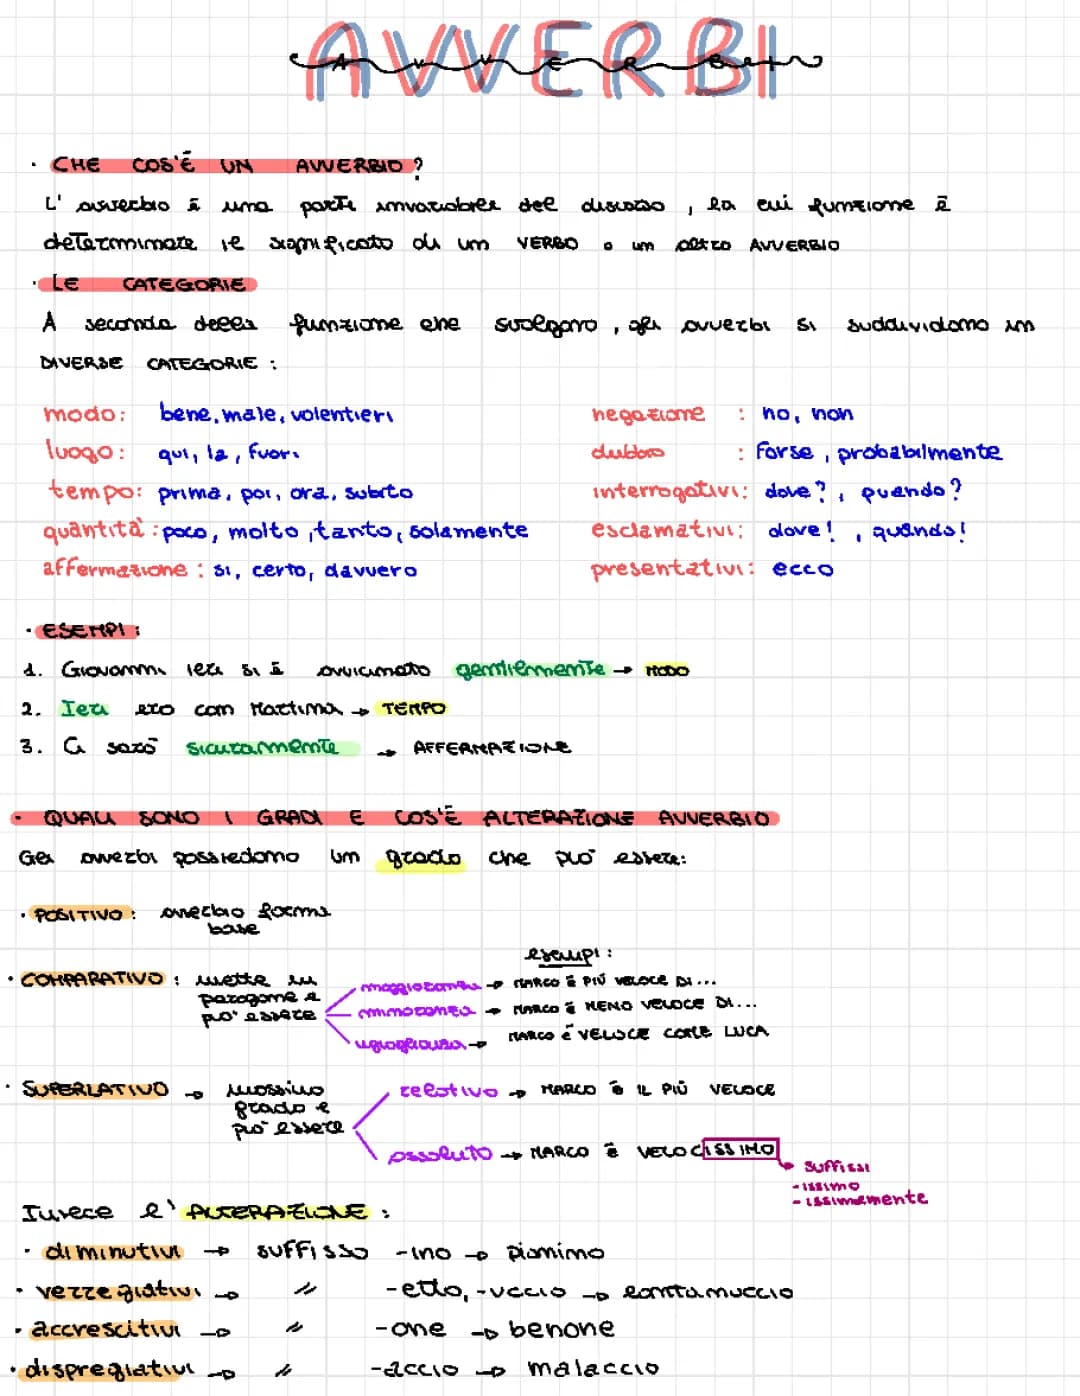 AVVERBI
Avverbi
· CHE COS'È UN AVVERBIO?
L'avverbio è una parte invariabile del discorso, la cui funzione è
determinare il significato di un VERBO o un altro AVVERBIO
· LE CATEGORIE
A seconda della funzione che svolgono, gli avverbi si suddividono in
DIVERSE CATEGORIE:
modo: bene, male, volentieri
negazione: no, non
luogo: qui, la, fuori
dubbio: forse, probabilmente
tempo: prima, poi, ora, subito
interrogativi: dove?, quando?
quantità: poco, molto, tanto, solamente
esclamativi: dove!, quando!
affermazione: si, certo, davvero
presentativi: ecco
· ESEMPI:
1. Giovanni ieri si è avvicinato gentilmente → MODO
2. Ieri ero con Martina → TEMPO
3. Ci sarò sicuramente → AFFERMAZIONE
· QUALI SONO I GRADI E COS'È ALTERAZIONE AVVERBIO
Gli avverbi possiedono un grado che può essere:
· POSITIVO: avverbio forma
base
esempi:
· COMPARATIVO: mette in
paragone e
può essere
maggioranza → MARCO È PIÙ VELOCE DI...
minoranza → MARCO È MENO VELOCE DI...
uguaglianza → MARCO È VELOCE COME LUCA
· SUPERLATIVO → massimo
grado e
può essere
relativo → MARCO È IL PIÙ VELOCE
assoluto → MARCO È VELOCISSIMO
suffissi
-issimo
-issimamente
Invece l'ALTERAZIONE:
· diminutivi → suffisso -ino → pianino
· vezzegiativi → // -etto, -uccio → lontanuccio
· accrescitivi → // -one → benone
· dispregiativi → // -accio → malaccio